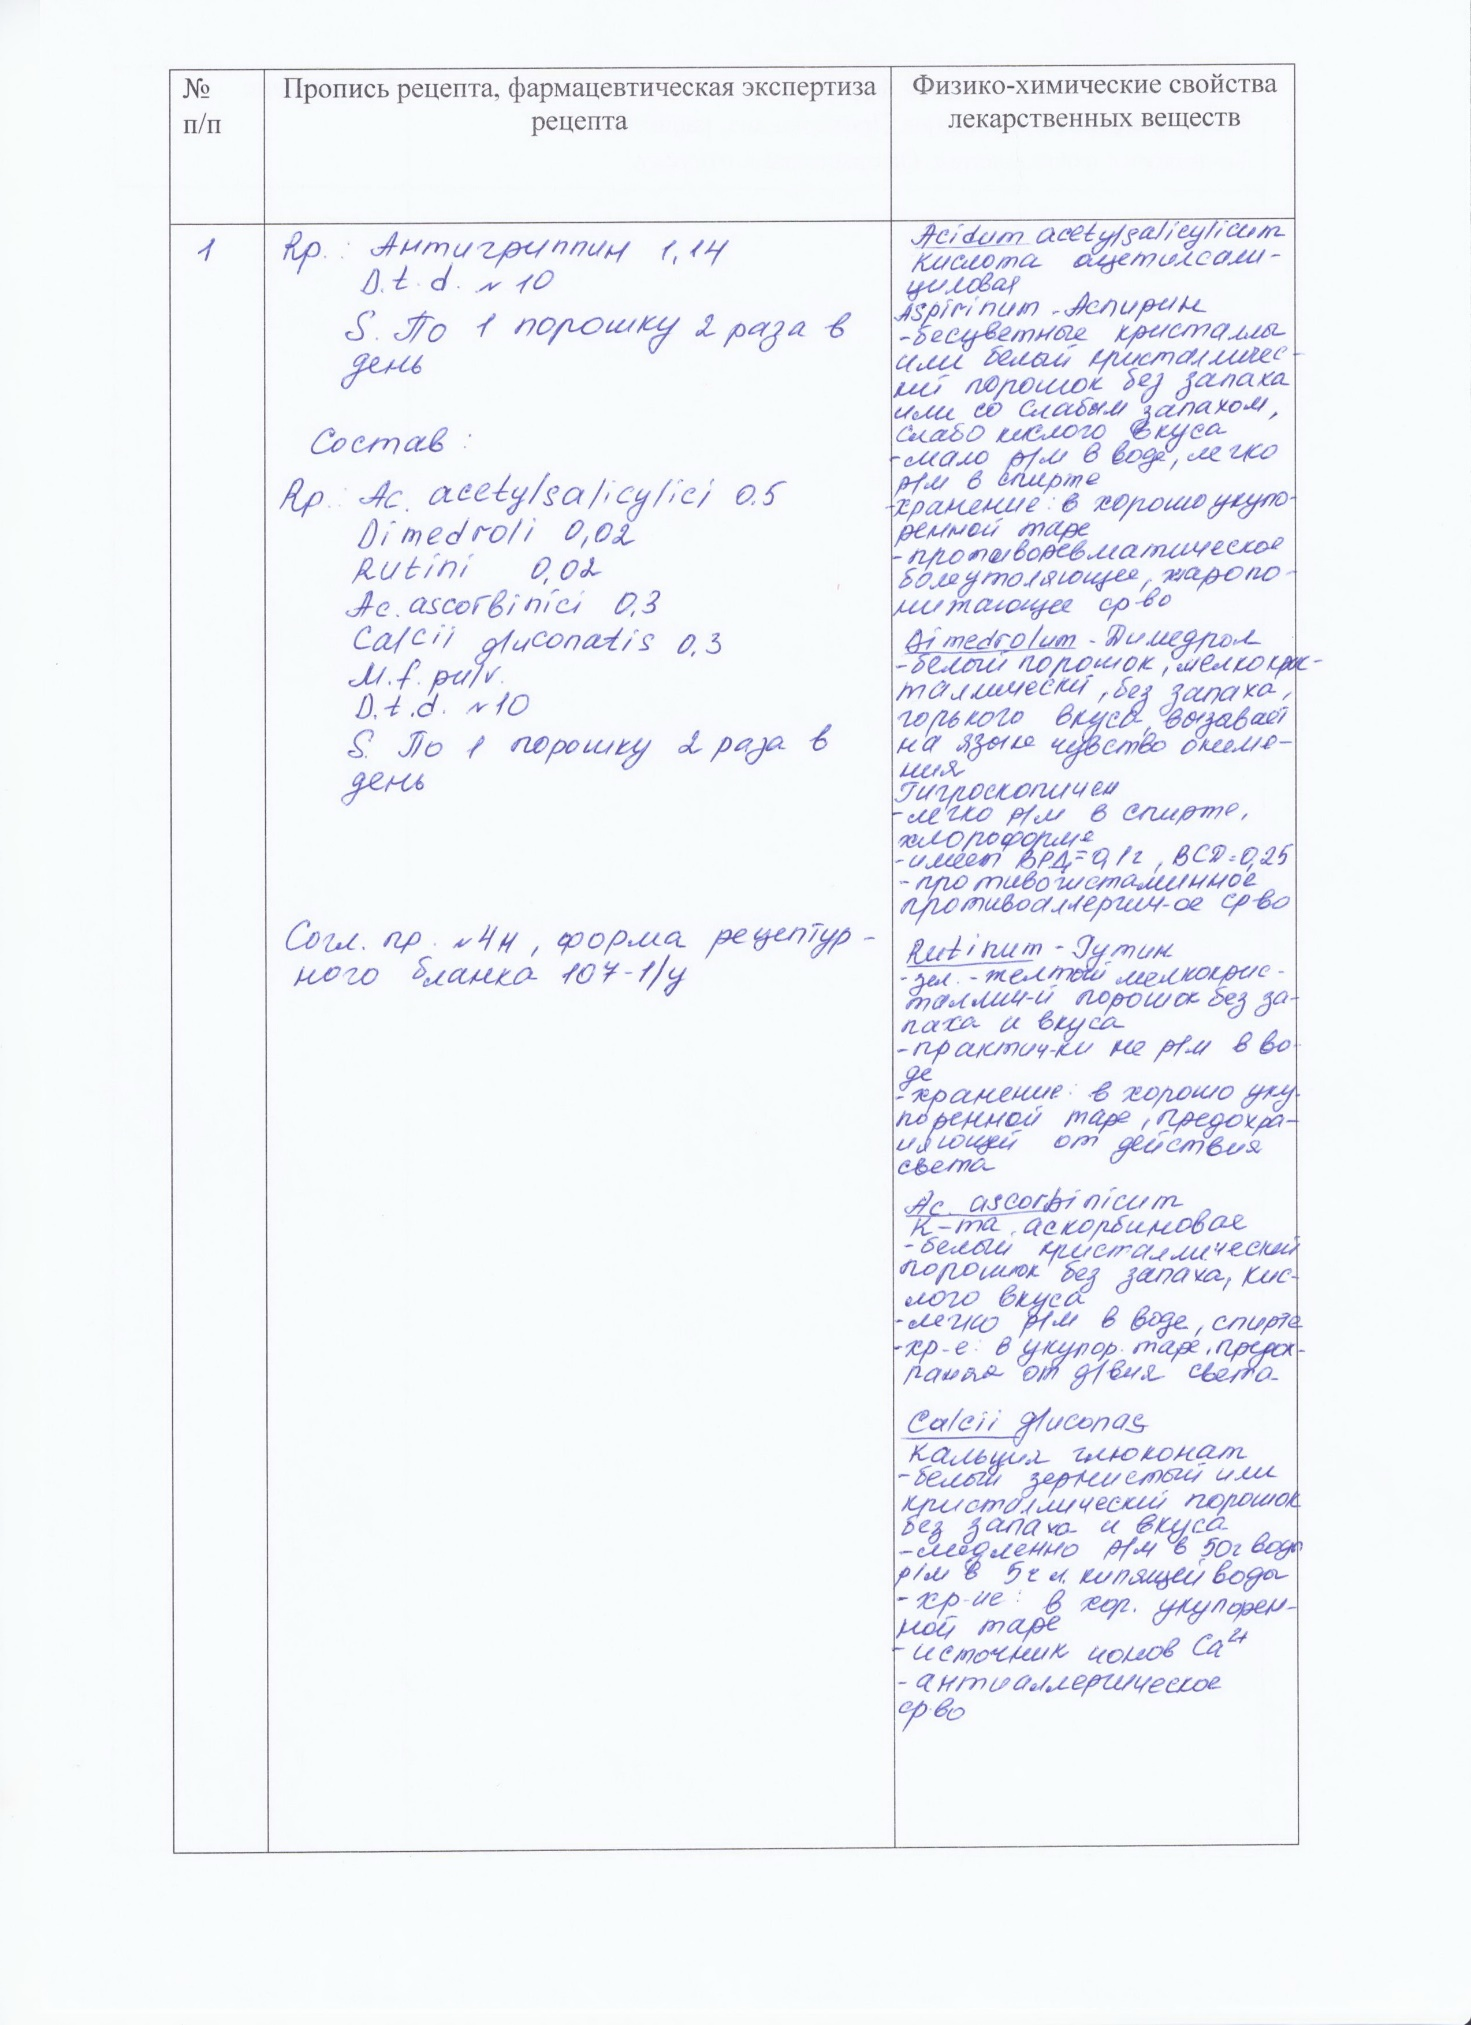 №
п/п
Пропись рецепта, фармацевтическая экспертиза
рецепта
Физико-химические свойства
лекарственных веществ
1
Rp.: Антигриппин 1,14
D.t.d. №10
S. По 1 порошку 2 раза в
день
Состав:
Rp.: Ac. acetylsalicylici 0.5
Dimedroli 0,02
Rutini 0,02
Ac. ascorbinici 0,3
Calcii gluconatis 0,3
M.f. pulv.
D.t.d. №10
S. По 1 порошку 2 раза в
день
Согл. пр. №4н, форма рецептур-
ного бланка 107-1/у
Acidum acetylsalicylicum
кислота ацетилсали-
циловая
Aspirinum - Аспирин
-бесцветные кристаллы
или белый кристалличес-
кий порошок без запаха
или со слабым запахом,
слабо кислого вкуса
-мало р/м в воде, легко
р/м в спирте
-хранение: в хорошо укупо-
ренной таре
-противоревматическое
болеутоляющее, жаропо-
нижающее ср-во
Dimedrolum - Димедрол
-белый порошок, мелкокрис-
таллический, без запаха,
горького вкуса, вызавает
на языке чувство онеме-
ния
Гигроскопичен
-легко р/м в спирте,
хлороформе
-имеет ВРД=0,1г, ВСД=0,25
-противогистаминное
противоаллергич-ое ср-во
Rutinum - Рутин
-зел.-желтый мелкокрис-
таллич-й порошок без за-
паха и вкуса
-практич-ки не р/м в во-
де
-хранение: в хорошо уку-
поренной таре, предохра-
няющей от действия
света
Ac. ascorbinicum
К-та аскорбиновая
-белый кристаллический
порошок без запаха, кис-
лого вкуса
-легко р/м в воде, спирте
-хр-е: в укупор. таре, предох-
от д/вия света
Calcii gluconas
Кальция глюконат
-белый зернистый или
кристаллический порошок
без запаха и вкуса
-медленно р/м в 50ч воды
р/м в 5ч л. кипящей воды
-хр-ие: в хор. укупорен-
ной таре
-источник ионов Ca²⁺
-антиаллергическое
ср-во